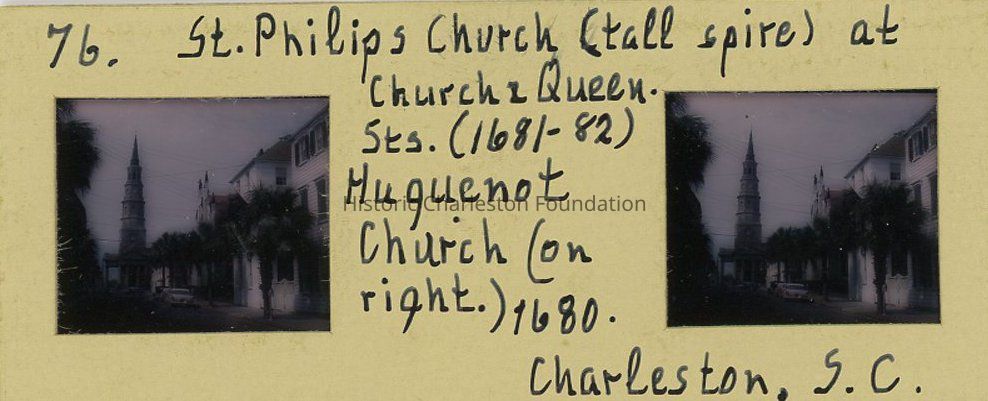 76. St. Philips Church (tall spire) at
Church & Queen.
Sts. (1681-82)
Huguenot
Historic Charleston Foundation
Church (on
right.) 1680.
Charleston, S.C.